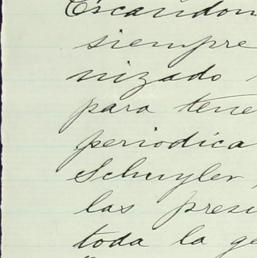 Escandon
siempre
nizado
para tene
periodica
Schuyler,
las presi
toda la ge